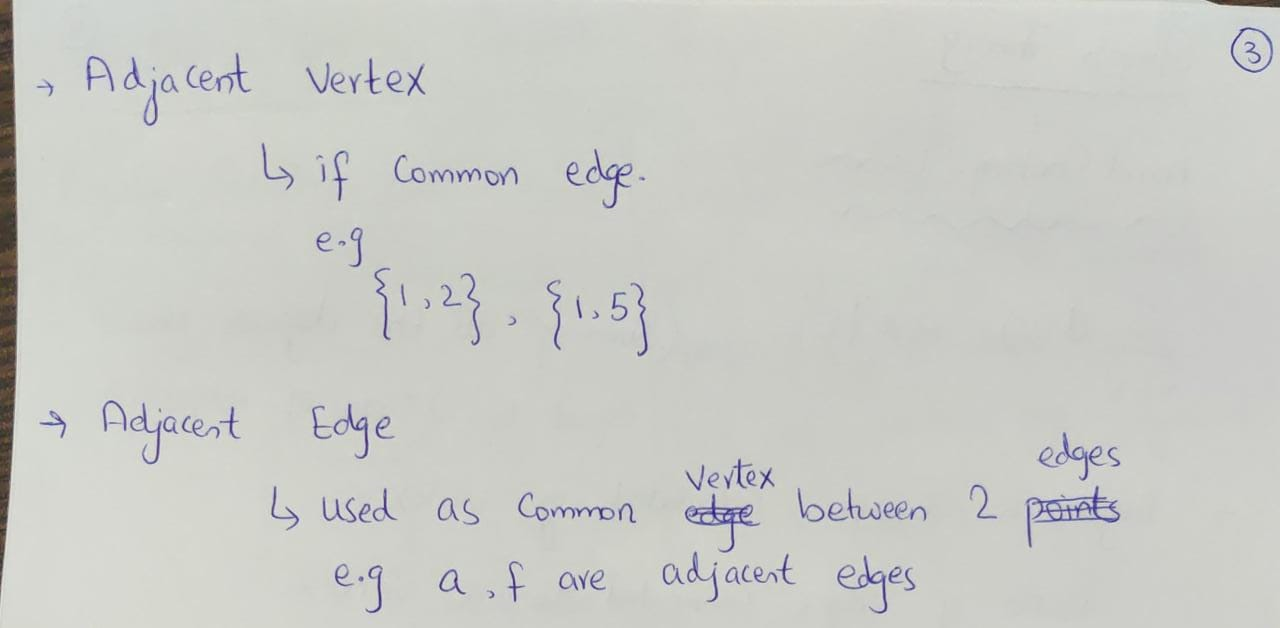 ③
→ Adjacent Vertex
↳ if Common edge.
e.g
{1,2}, {1,5}
→ Adjacent Edge
↳ used as Common ~~edge~~ Vertex between 2 ~~points~~ edges
e.g a, f are adjacent edges